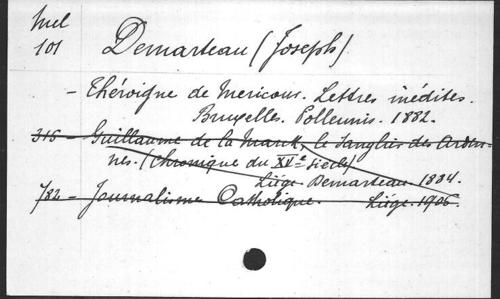 Mel
101 Demarteau (Joseph).
- Théroigne de Mericour. Lettres inédites.
Bruxelles. Polleunis. 1882.
315 - Guillaume de la Marck, le Sanglier des Arden-
nes. (Chronique du XVe siècle)
Liége Demarteau 1884.
782 - Journalisme Catholique. Liége. 1906.